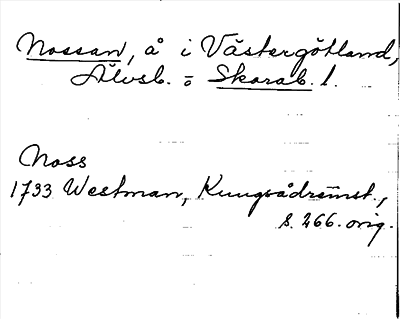 Nossan, å i Västergötland,
Älvsb. o Skarab. l.
Noss
1733 Westman, Kungsådreinst.,
s. 266. orig.